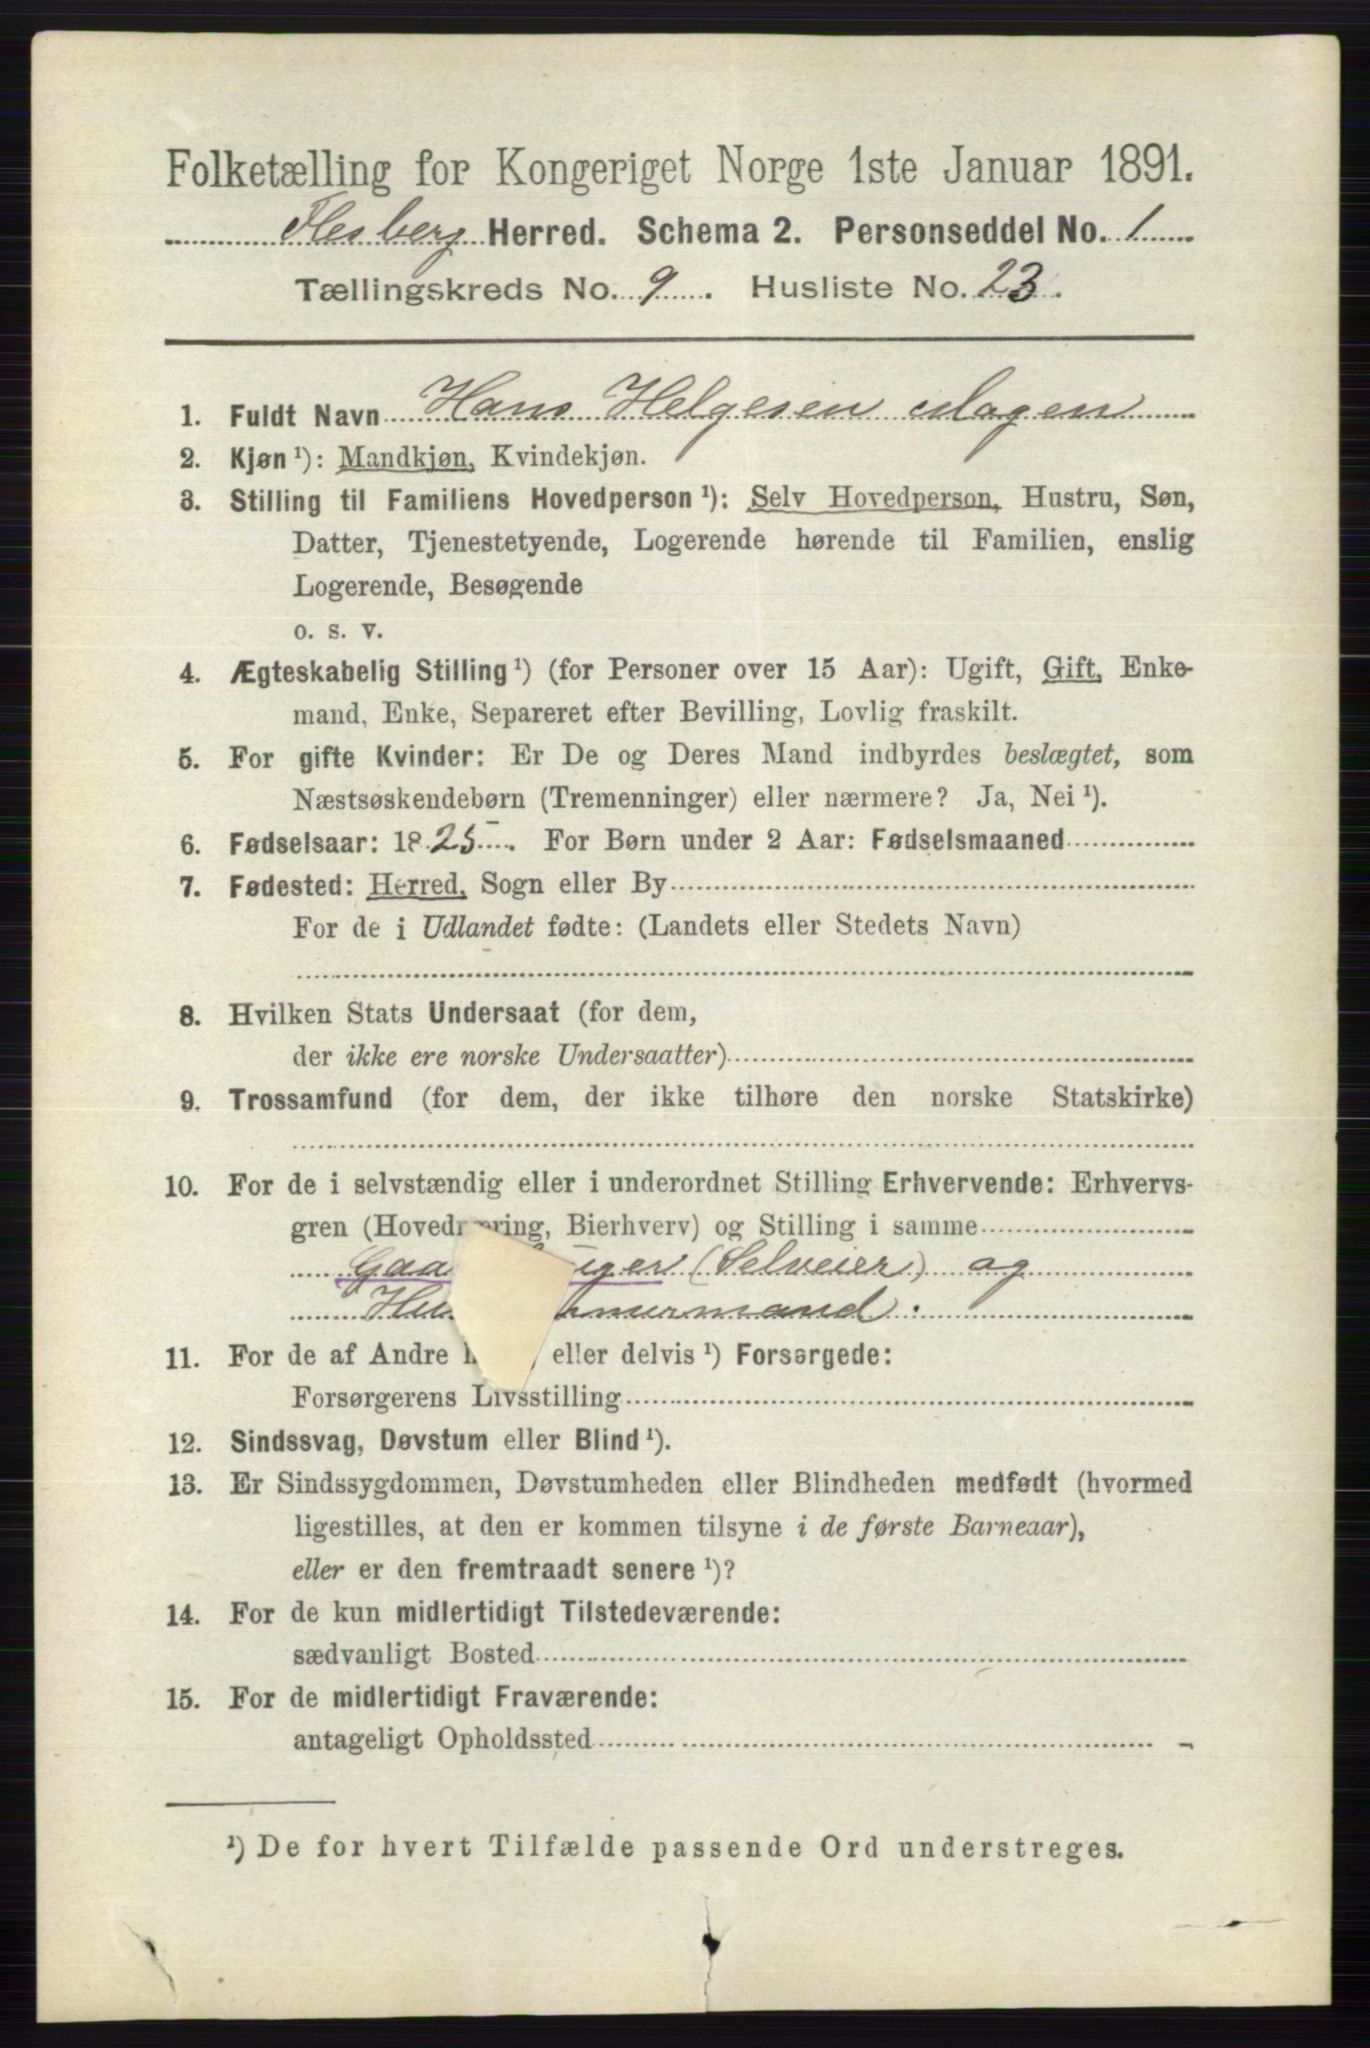 Folketælling for Kongeriget Norge 1ste Januar 1891.
Flesberg Herred. Schema 2. Personseddel No. 1
Tællingskreds No. 9. Husliste No. 23.
1. Fuldt Navn Hans Helgesen
2. Kjøn ¹): Mandkjøn, Kvindekjøn.
3. Stilling til Familiens Hovedperson ¹): Selv Hovedperson, Hustru, Søn,
Datter, Tjenestetyende, Logerende hørende til Familien, enslig
Logerende, Besøgende
o. s. v.
4. Ægteskabelig Stilling ¹) (for Personer over 15 Aar): Ugift, Gift, Enke-
mand, Enke, Separeret efter Bevilling, Lovlig fraskilt.
5. For gifte Kvinder: Er De og Deres Mand indbyrdes beslægtet, som
Næstsøskendebørn (Tremenninger) eller nærmere? Ja, Nei ¹).
6. Fødselsaar: 1825. For Børn under 2 Aar: Fødselsmaaned
7. Fødested: Herred, Sogn eller By
For de i Udlandet fødte: (Landets eller Stedets Navn)
8. Hvilken Stats Undersaat (for dem,
der ikke ere norske Undersaatter)
9. Trossamfund (for dem, der ikke tilhøre den norske Statskirke)
10. For de i selvstændig eller i underordnet Stilling Erhvervende: Erhvervs-
gren (Hovednæring, Bierhverv) og Stilling i samme
Gaa uger (Selveier) og
Hu murmand.
11. For de af Andre eller delvis ¹) Forsørgede:
Forsørgerens Livsstilling
12. Sindssvag, Døvstum eller Blind ¹).
13. Er Sindssygdommen, Døvstumheden eller Blindheden medfødt (hvormed
ligestilles, at den er kommen tilsyne i de første Barneaar),
eller er den fremtraadt senere ¹)?
14. For de kun midlertidigt Tilstedeværende:
sædvanligt Bosted
15. For de midlertidigt Fraværende:
antageligt Opholdssted
¹) De for hvert Tilfælde passende Ord understreges.